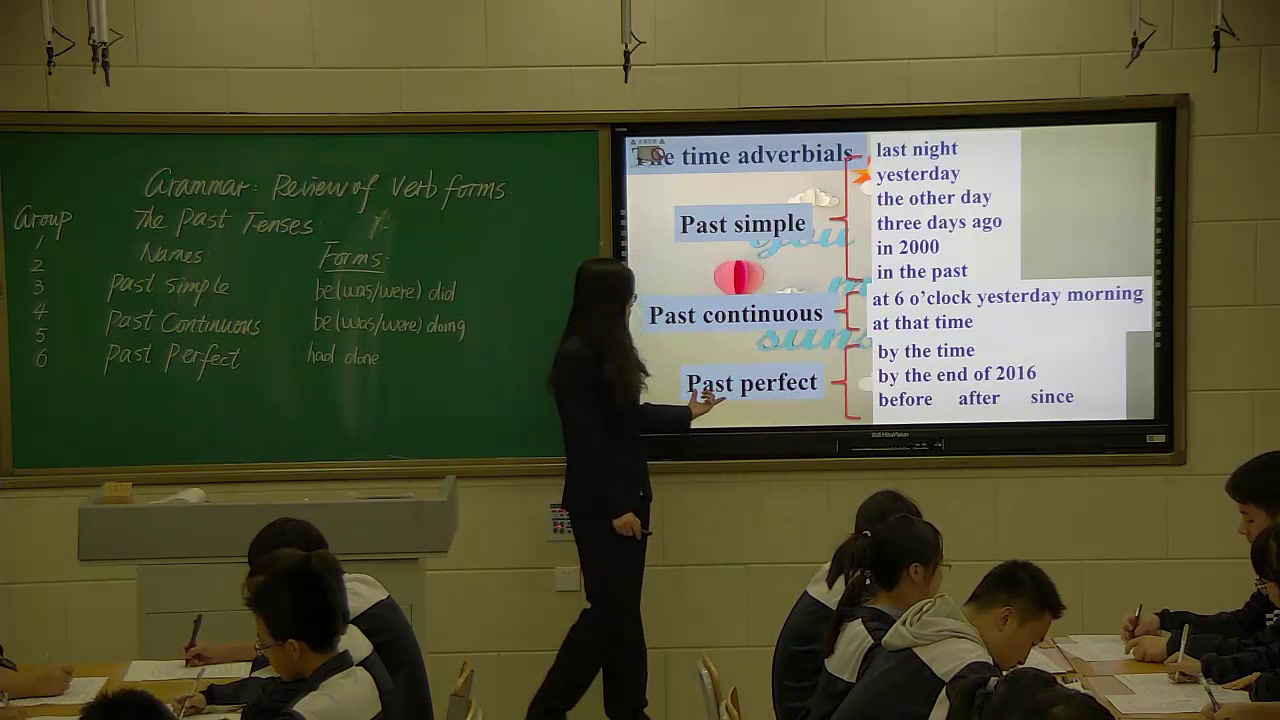 Grammar: Review of Verb forms.
Group
The Past Tenses:
1
Names
Forms:
2
3
Past Simple
be(was/were) did
4
Past Continuous
be(was/were) doing
5
6
Past Perfect
had done
e time adverbials
last night
yesterday
the other day
Past simple
three days ago
in 2000
in the past
you
Past continuous
at 6 o'clock yesterday morning
at that time
sun
Past perfect
by the time
by the end of 2016
before after since